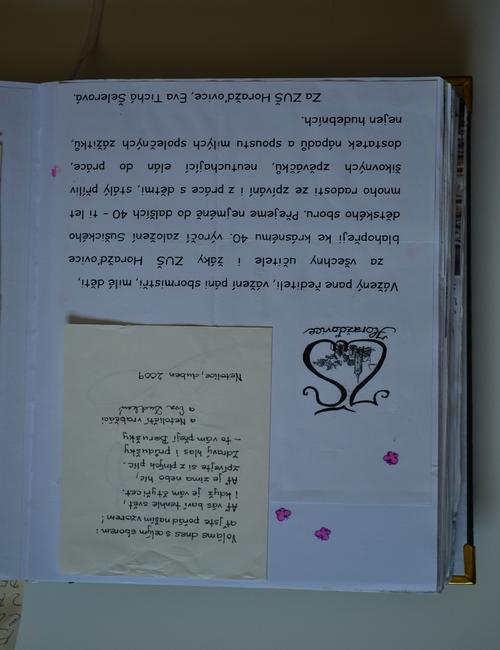 Horažďovice
Vážený pane řediteli, vážení páni sbormistři, milé děti,
za všechny učitele i žáky ZUŠ Horažďovice
blahopřeji ke krásnému 40. výročí založení Sušického
dětského sboru. Přejeme nejméně do dalších 40 – ti let
mnoho radosti ze zpívání i z práce s dětmi, stálý příliv
šikovných zpěváčků, neutuchající elán do práce,
dostatek nápadů a spoustu milých společných zážitků,
nejen hudebních.
Za ZUŠ Horažďovice, Eva Tichá Šelerová.
Voláme dnes s celým sborem:
ať jste pořád naším vzorem!
Ať vás baví tenhle svět,
i když je vám čtyřicet.
Ať je zima nebo hic,
zpívejte si z plných plic.
Zdravý hlas i průdušky
– to vám přejí Berušky
a Netoličtí vrabčáci
a Eva
Netolice, duben 2009